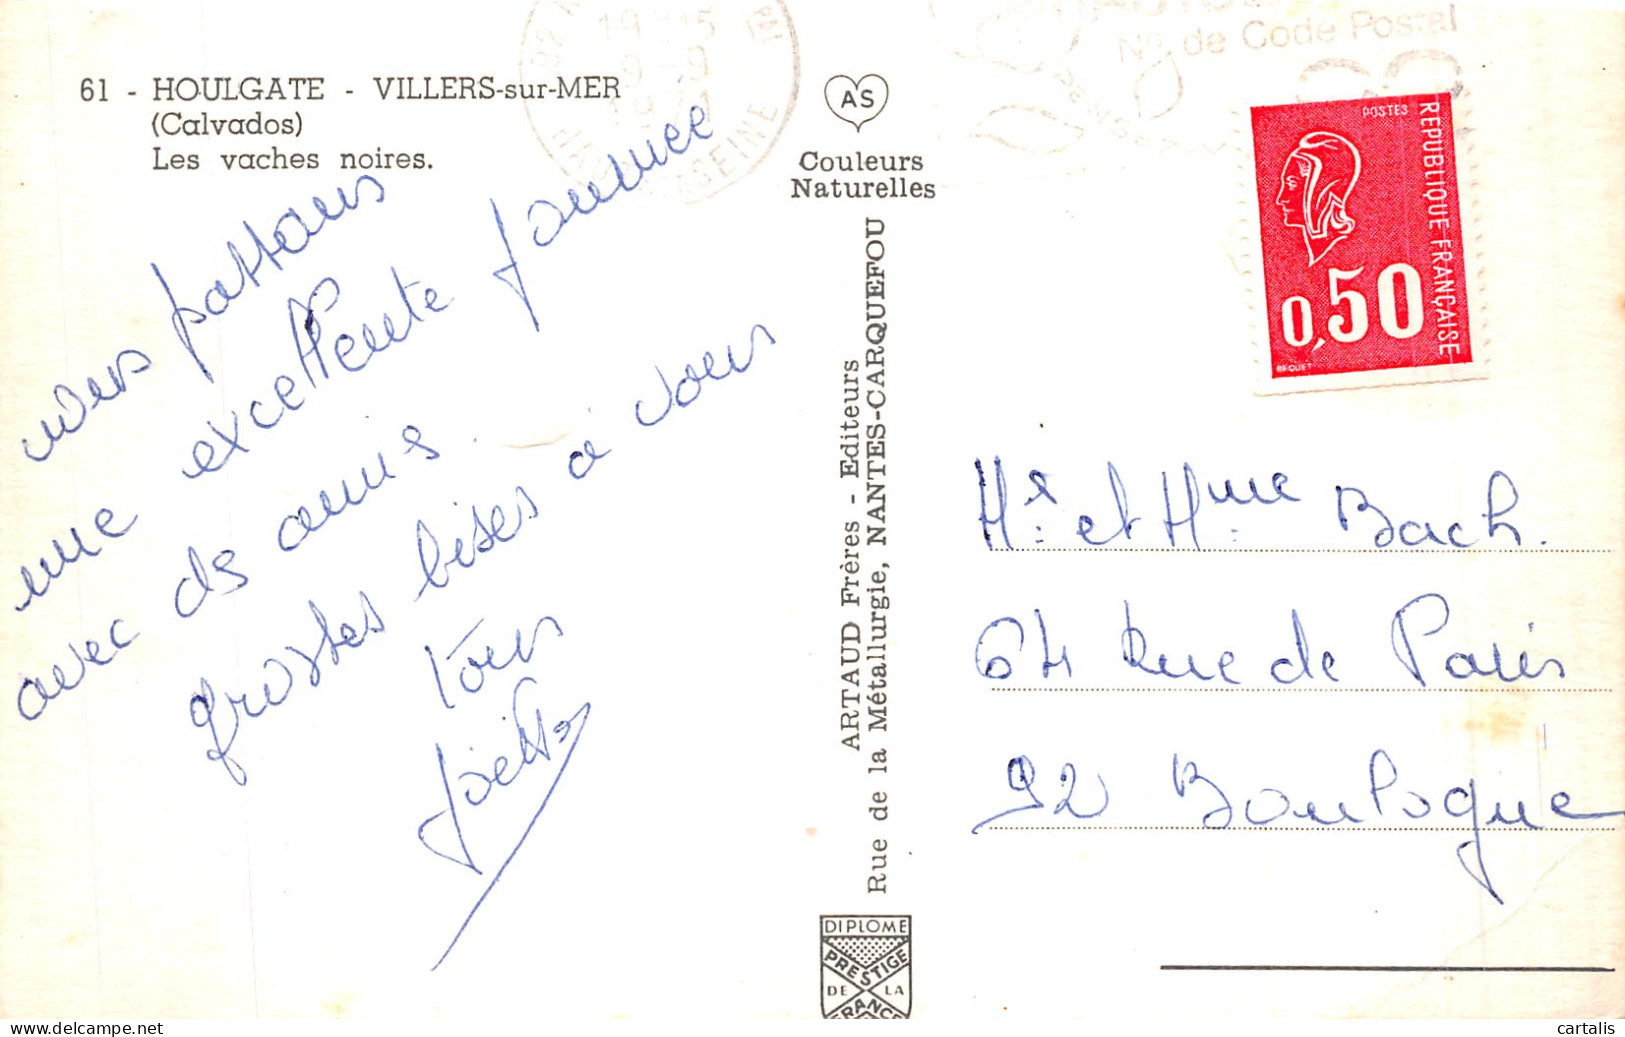 61 - HOULGATE - VILLERS-sur-MER
(Calvados)
Les vaches noires.
nous passons
une excellente journée
avec des amis.
grosses bises à vous
tous
Joëlle
AS
Couleurs
Naturelles
ARTAUD Frères - Editeurs
Rue de la Métallurgie, NANTES-CARQUEFOU
DIPLOME
PRESTIGE
DE LA
FRANCE
19 15
9-9
SEINE
No de Code Postal
POSTES
REPUBLIQUE FRANÇAISE
0,50
BEQUET
Mr. et Mme Bach.
64 Rue de Paris
92 Boulogne
cartalis